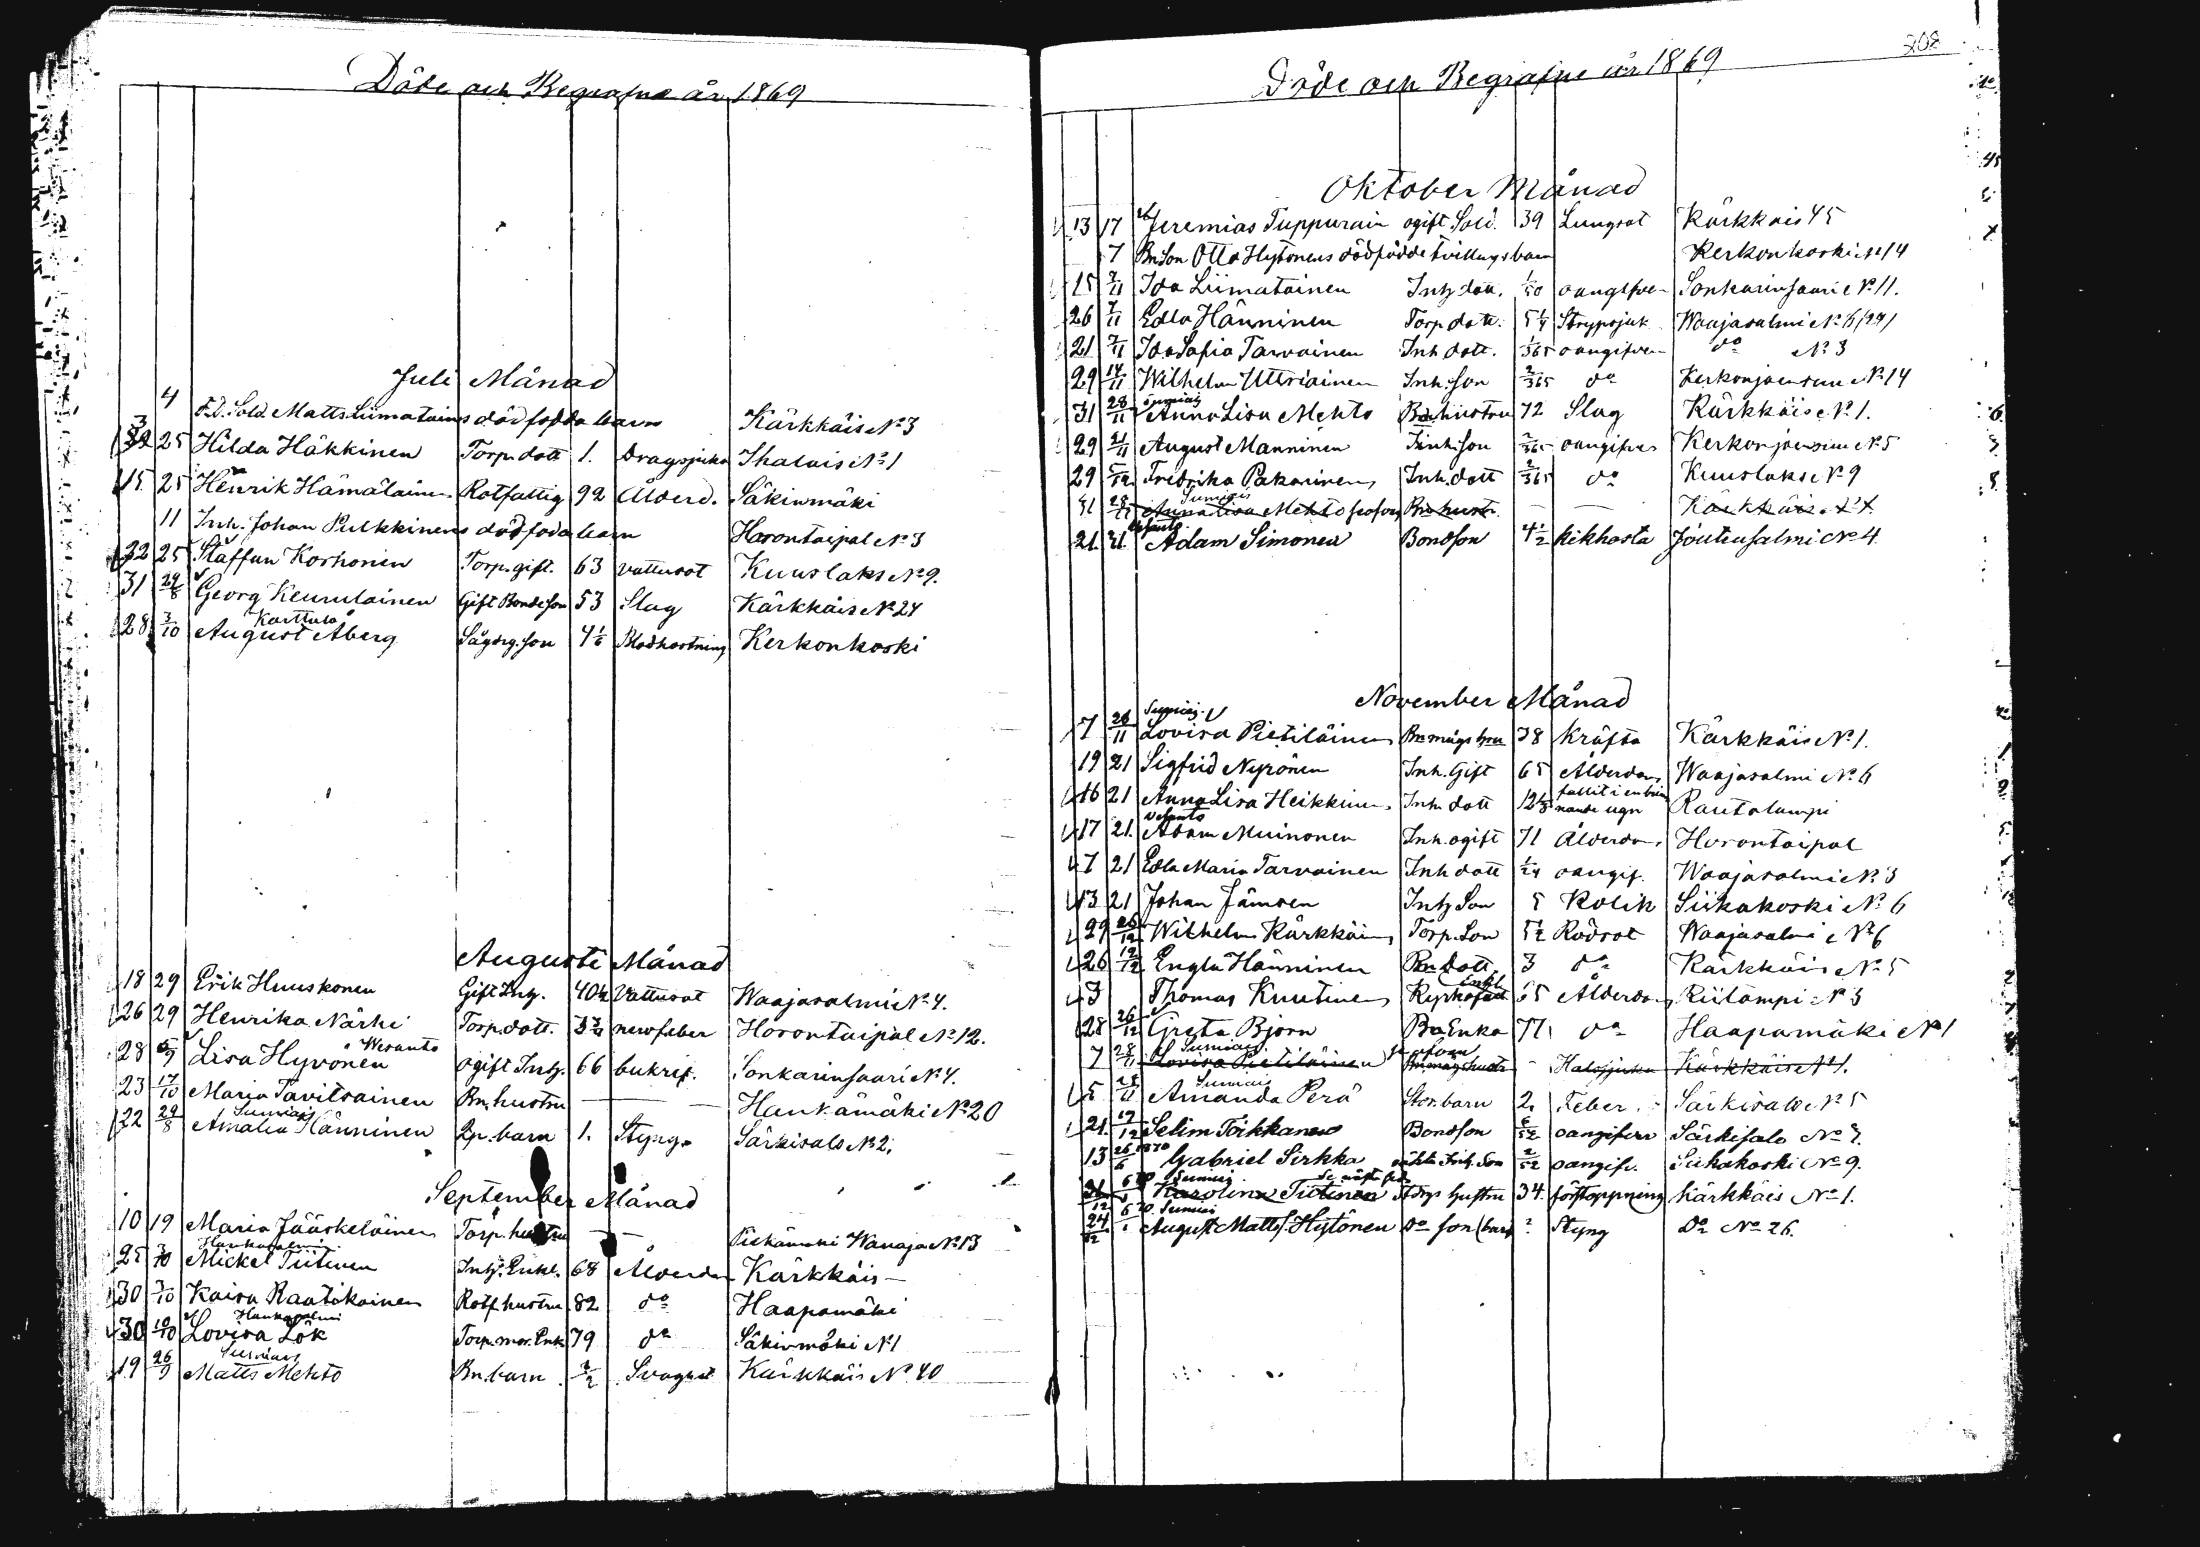 Döde och Begrafne år 1869
Juli Månad
4 F.d. Sold. Matts Liimatains dödfödda barn Kärkkäis No 3
3 25 Hilda Häkkinen Torp. dott 1. Dragsjuka Ihalais No 1
15. 25 Henrik Hämäläinen Rotfattig 92 Ålderd. Säkinmäki
11 Inh. Johan Pulkkinens dödfoda barn Horontaipal No 3
22 25 Staffan Korhonen Torp. gift. 63 vattusot Kuuslaks No 9.
31 29/8 Georg Keurulainen Gift Bondeson 53 Slag Kärkkäis No 24
Karttula
28 3/10 August Åberg Sågdrg. son 4 1/6 Blodhostning Kerkonkoski
Augusti Månad
18 29 Erik Huuskonen Gift Inh. 40 1/2 Vattusot Waajasalmi No 4.
26 29 Henrika Närhi Torp. dott. 3 3/4 nervfeber Horontaipal No 12.
Wesanto
28 5/9 Lisa Hyvönen ogift Inh. 66 bukref. Sonkarinsaari No 4.
23 17/10 Maria Tavitsainen Bn. hustru — — Hankamäki No 20
Sumiais
22 29/8 Amalia Hänninen Lp. barn 1. Styng. Särkisalo No 2.
September Månad
10 19 Maria Jääskeläinen Torp. hustru — — Wanaja No 13
Hankasalmi
25 3/10 Mickel Tiitinen Inh. Enkl. 68 Ålderdom Kärkkäis —
30 3/10 Kaisa Raatikainen Rotf. hustru 82 do Haapamäki
Hankasalmi
30 10/10 Lovisa Lök Torp. mor. Enk. 79 do Säkinmäki No 1
Sumiais
19 26/9 Matts Mehto Bn. barn 1/2 Kärkkäis No 40
Döde och Begrafne år 1869
208
Oktober Månad
13 17 Jeremias Tuppurain ogift Sold. 39 Lungsot Kärkkäis 45
7 Bn. Son Otto Hytönens dödfödde tvillingsbarn Kerkonkoski No 14
15 7/11 Ida Liimatainen Inh. dott. 1/50 oangifven Sonkarinsaari No 11.
26 7/11 Edla Hänninen Torp. dott. 5 1/4 Strypsjuk Waajasalmi No 6
21 7/11 Ida Sofia Tarvainen Inh. dott. 1/365 oangifven do No 3
29 14/11 Wilhelm Uttriainen Inh. son 2/365 do Kerkonjoensuu No 14
Sumiais
31 28/11 Anna Lisa Mehto Bn. hustru 72 Slag Kärkkäis No 1.
29 21/11 August Manninen Inh. son 2/365 oangifven Kerkonjoensuu No 5
29 5/12 Fredrika Pakarinen Inh. dott 2/365 do Kuuslaks No 9
Sumiais
31 28/11 Anna Lisa Mehto se ofvan Bn. hustr. — — Kärkkäis No 1
Vesanto
21. 21. Adam Simonen Bondson 4 1/2 kikhosta Joutensalmi No 4.
November Månad
Sumiais.
7 28/11 Lovisa Pietiläinen Bn. mågs hru 38 kräfta Kärkkäis No 1.
19 21 Sigfrid Nyrönen Inh. Gift 65 Ålderdom Waajasalmi No 6
16 21 Anna Lisa Heikkinen Inh. dott 12 1/3 fallit i en brinnande ugn Rautalampi
Vesanto
17 21. Adam Muinonen Inh. ogift 71 Ålderdom Horontaipal
7 21 Edla Maria Tarvainen Inh dott 1/24 oangif. Waajasalmi No 3
13 21 Johan Jämsen Inh. Son 5 Kolik Siikakoski No 6
29 26/12 Wilhelm Kärkkäinen Torp. Son 5 1/2 Rödsot Waajasalmi No 6
26 12/12 Engla Hänninen Bn. dott. 3 do Kärkkäis No 5
Enkl.
3 Thomas Knutinen 65 Ålderdom Kiilampi No 3
28 26/12 Greta Björn Bn Enka 77 do Haapamäki No 1
Sumiais. se ofvan
7 28/11 Lovisa Pietiläinen Bn. mågs hustr - Halssjuka Kärkkäis No 1.
Sumiais
5 28/11 Amanda Perä barn 2. Feber. Särkisalo No 5
21. 19/12 Selim Törkkanen Bondson 6/52 oangifven Särkisalo No 7.
1870
13 26/6 Gabriel Sirkka oäkta Inh. Son 2/52 oangifv. Siikakoski No 9.
70 Sumiais
21/12 6/1 Karolina Tiitinen hustru 34. förstoppning Kärkkäis No 1.
70. Sumiais
24/12 6/1 August Matts. Hytönen do son (barn) ? Styng Do No 26.